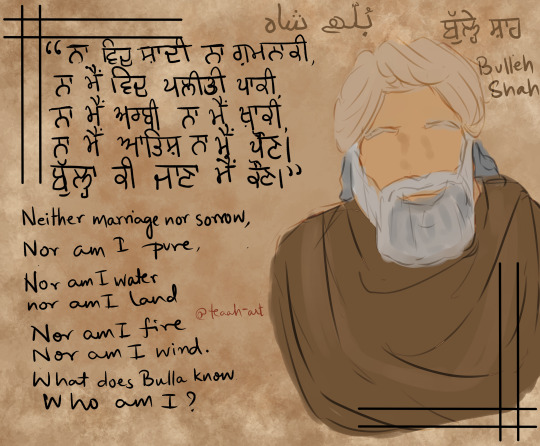 بُلّھے شاہ
ਬੁੱਲ੍ਹੇ ਸ਼ਾਹ
Bulleh
Shah
“ਨਾ ਵਿਚ ਸ਼ਾਦੀ ਨਾ ਗ਼ਮਨਾਕੀ,
ਨਾ ਮੈਂ ਵਿਚ ਪਲੀਤੀ ਪਾਕੀ,
ਨਾ ਮੈਂ ਅਰਬੀ ਨਾ ਮੈਂ ਖ਼ਾਕੀ,
ਨਾ ਮੈਂ ਆਤਿਸ਼ ਨਾ ਮੈਂ ਪੌਣ।
ਬੁੱਲ੍ਹਾ ਕੀ ਜਾਣਾ ਮੈਂ ਕੌਣ।”
Neither marriage nor sorrow,
Nor am I pure,
Nor am I water
nor am I land
Nor am I fire
Nor am I wind.
What does Bulla know
Who am I?
@teaah-art